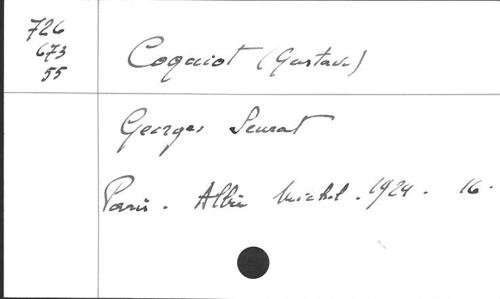 726
673
55
Coquiot (Gustave)
Georges Seurat
Paris. Albin Michel. 1924. 16.